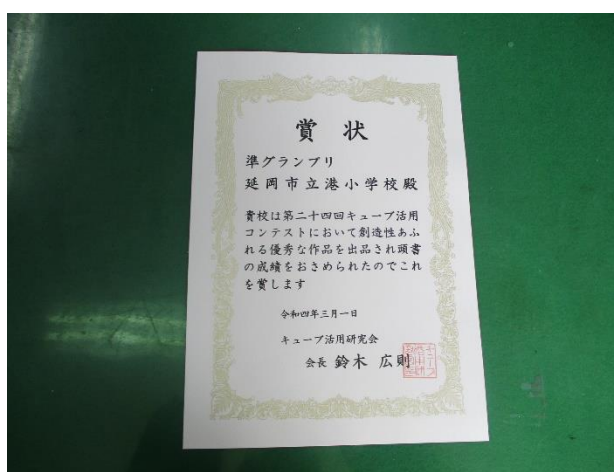 賞状
準グランプリ
延岡市立港小学校殿
貴校は第二十四回キューブ活用
コンテストにおいて創造性あふ
れる優秀な作品を出品され頭書
の成績をおさめられたのでこれ
を賞します
令和四年三月一日
キューブ活用研究会
会長 鈴木 広則